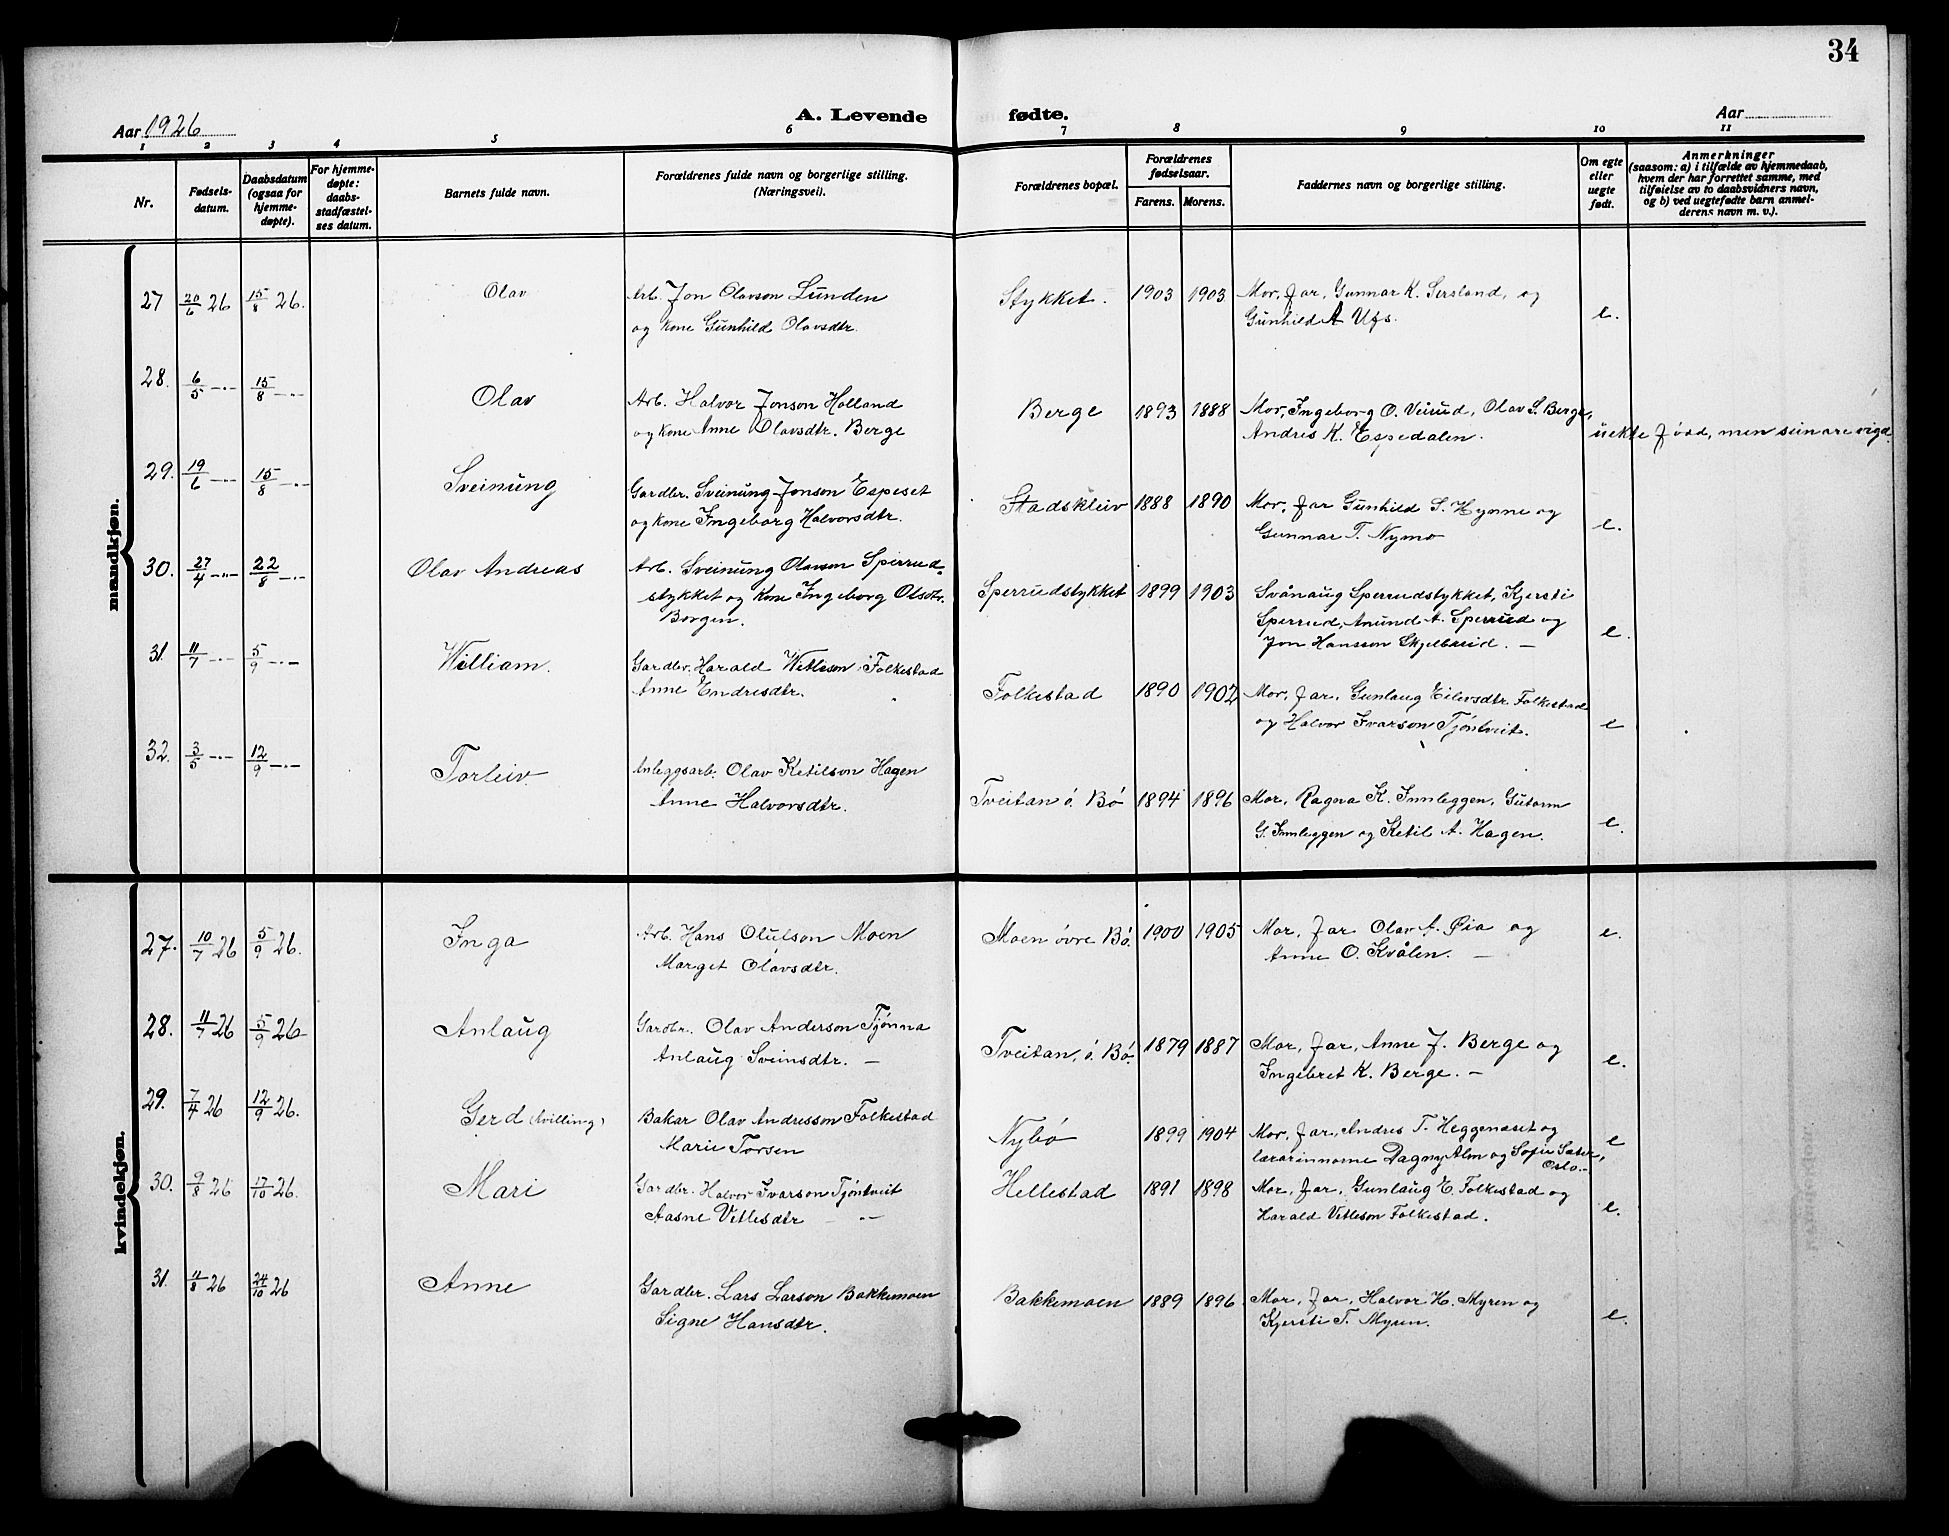 34
Aar 1926
A. Levende fødte.
Aar
1 2 3 4 5 6 7 8 9 10 11
Nr.
Fødsels-
datum.
Daabsdatum
(ogsaa for
hjemme-
døpte).
For hjemme-
døpte:
daabs-
stadfæstel-
ses datum.
Barnets fulde navn.
Forældrenes fulde navn og borgerlige stilling.
(Næringsvei).
Forældrenes bopæl.
Forældrenes
fødselsaar.
Farens. Morens.
Faddernes navn og borgerlige stilling.
Om egte
eller
uegte
født.
Anmerkninger
(saasom: a) i tilfælde av hjemmedaab,
hvem der har forrettet samme, med
tilføielse av to daabsvidners navn,
og b) ved uegtefødte barn anmel-
derens navn m. v.).
mandkjøn.
27 20/6 26 15/8 26. Olav Arb. Jon Olavson Lunden Stykket. 1903 1903 Mor, far, Gunnar K. Sersland, og
og kone Gunhild Olavsdtr. Gunhild A Ufs. e.
28. 6/5 -.- 15/8 -.- Olav Arb. Halvor Jonson Holland Berge 1893 1888 Mor, Ingeborg O. Veirud, Olav S. Berge,
og kone Anne Olavsdtr. Berge Andres K. Espedalen. uekte fødd, men seinare vigd.
29. 19/6 -.- 15/8 -.- Sveinung Gardbr. Sveinung Jonson Espeset Stadskleiv 1888 1890 Mor, far Gunhild S. Hynne og
og kone Ingeborg Halvorsdtr. Gunnar T. Nymo e.
30. 27/4 -.- 22/8 -.- Olav Andreas Arb. Sveinung Olavson Sperrud- Sperrudstykket 1899 1903 Svånaug Sperrudstykket, Kjersti
stykket og kone Ingeborg Olsdtr. Sperrud, Anund A. Sperrud og
Borgen. Jon Hansson Skjelbreid. — e.
31. 11/7 -.- 5/9 -.- William. Gardbr. Harald Vetleson Folkestad Folkestad 1890 1902 Mor, far, Gunlaug Eilevsdtr. Folkestad
Anne Endresdtr. og Halvor Ivarson Tjöntveit. e
32. 3/5 -.- 12/9 -.- Torleiv Anleggsarb. Olav Ketilson Hagen Tveitan ö. Bö 1894 1896 Mor, Ragna K. Innleggen, Gutorm
Anne Halvorsdtr. G. Innleggen og Ketil A. Hagen. e.
kvindekjøn.
27. 10/7 26 5/9 26. Inga Arb. Hans Olulson Moen Moen övre Bö. 1900 1905 Mor, far Olav A. Øia og e.
Marget Olavsdtr. Anne O. Kvålen. —
28. 11/7 26 5/9 26 Anlaug Gardbr. Olav Anderson Tjönna Tveitan, ö. Bö. 1879 1887 Mor, far, Anne J. Berge og
Anlaug Sveinsdtr. — Ingebret K. Berge. — e.
29. 7/4 26 12/9 26. Gerd (tvilling) Bakar Olav Andresson Folkestad Nybö 1899 1904 Mor, far, Andres T. Heggenæset og e
Marie Torsen lærarinnorne Dagny Alm og Sofie Sater,
Oslo.-
30. 9/8 26 17/10 26. Mari Gardbr. Halvor Ivarson Tjöntveit Hellestad 1891 1898 Mor, far, Gunlaug E. Folkestad og
Aasne Vetlesdtr — Harald Vetleson Folkestad. e.
31. 11/8 26 24/10 26 Anne Gardbr. Lars Larson Bakkemoen Bakkemoen 1889 1896 Mor, far, Halvor H. Myren og
Signe Hansdtr. Kjersti T. Myren. e.